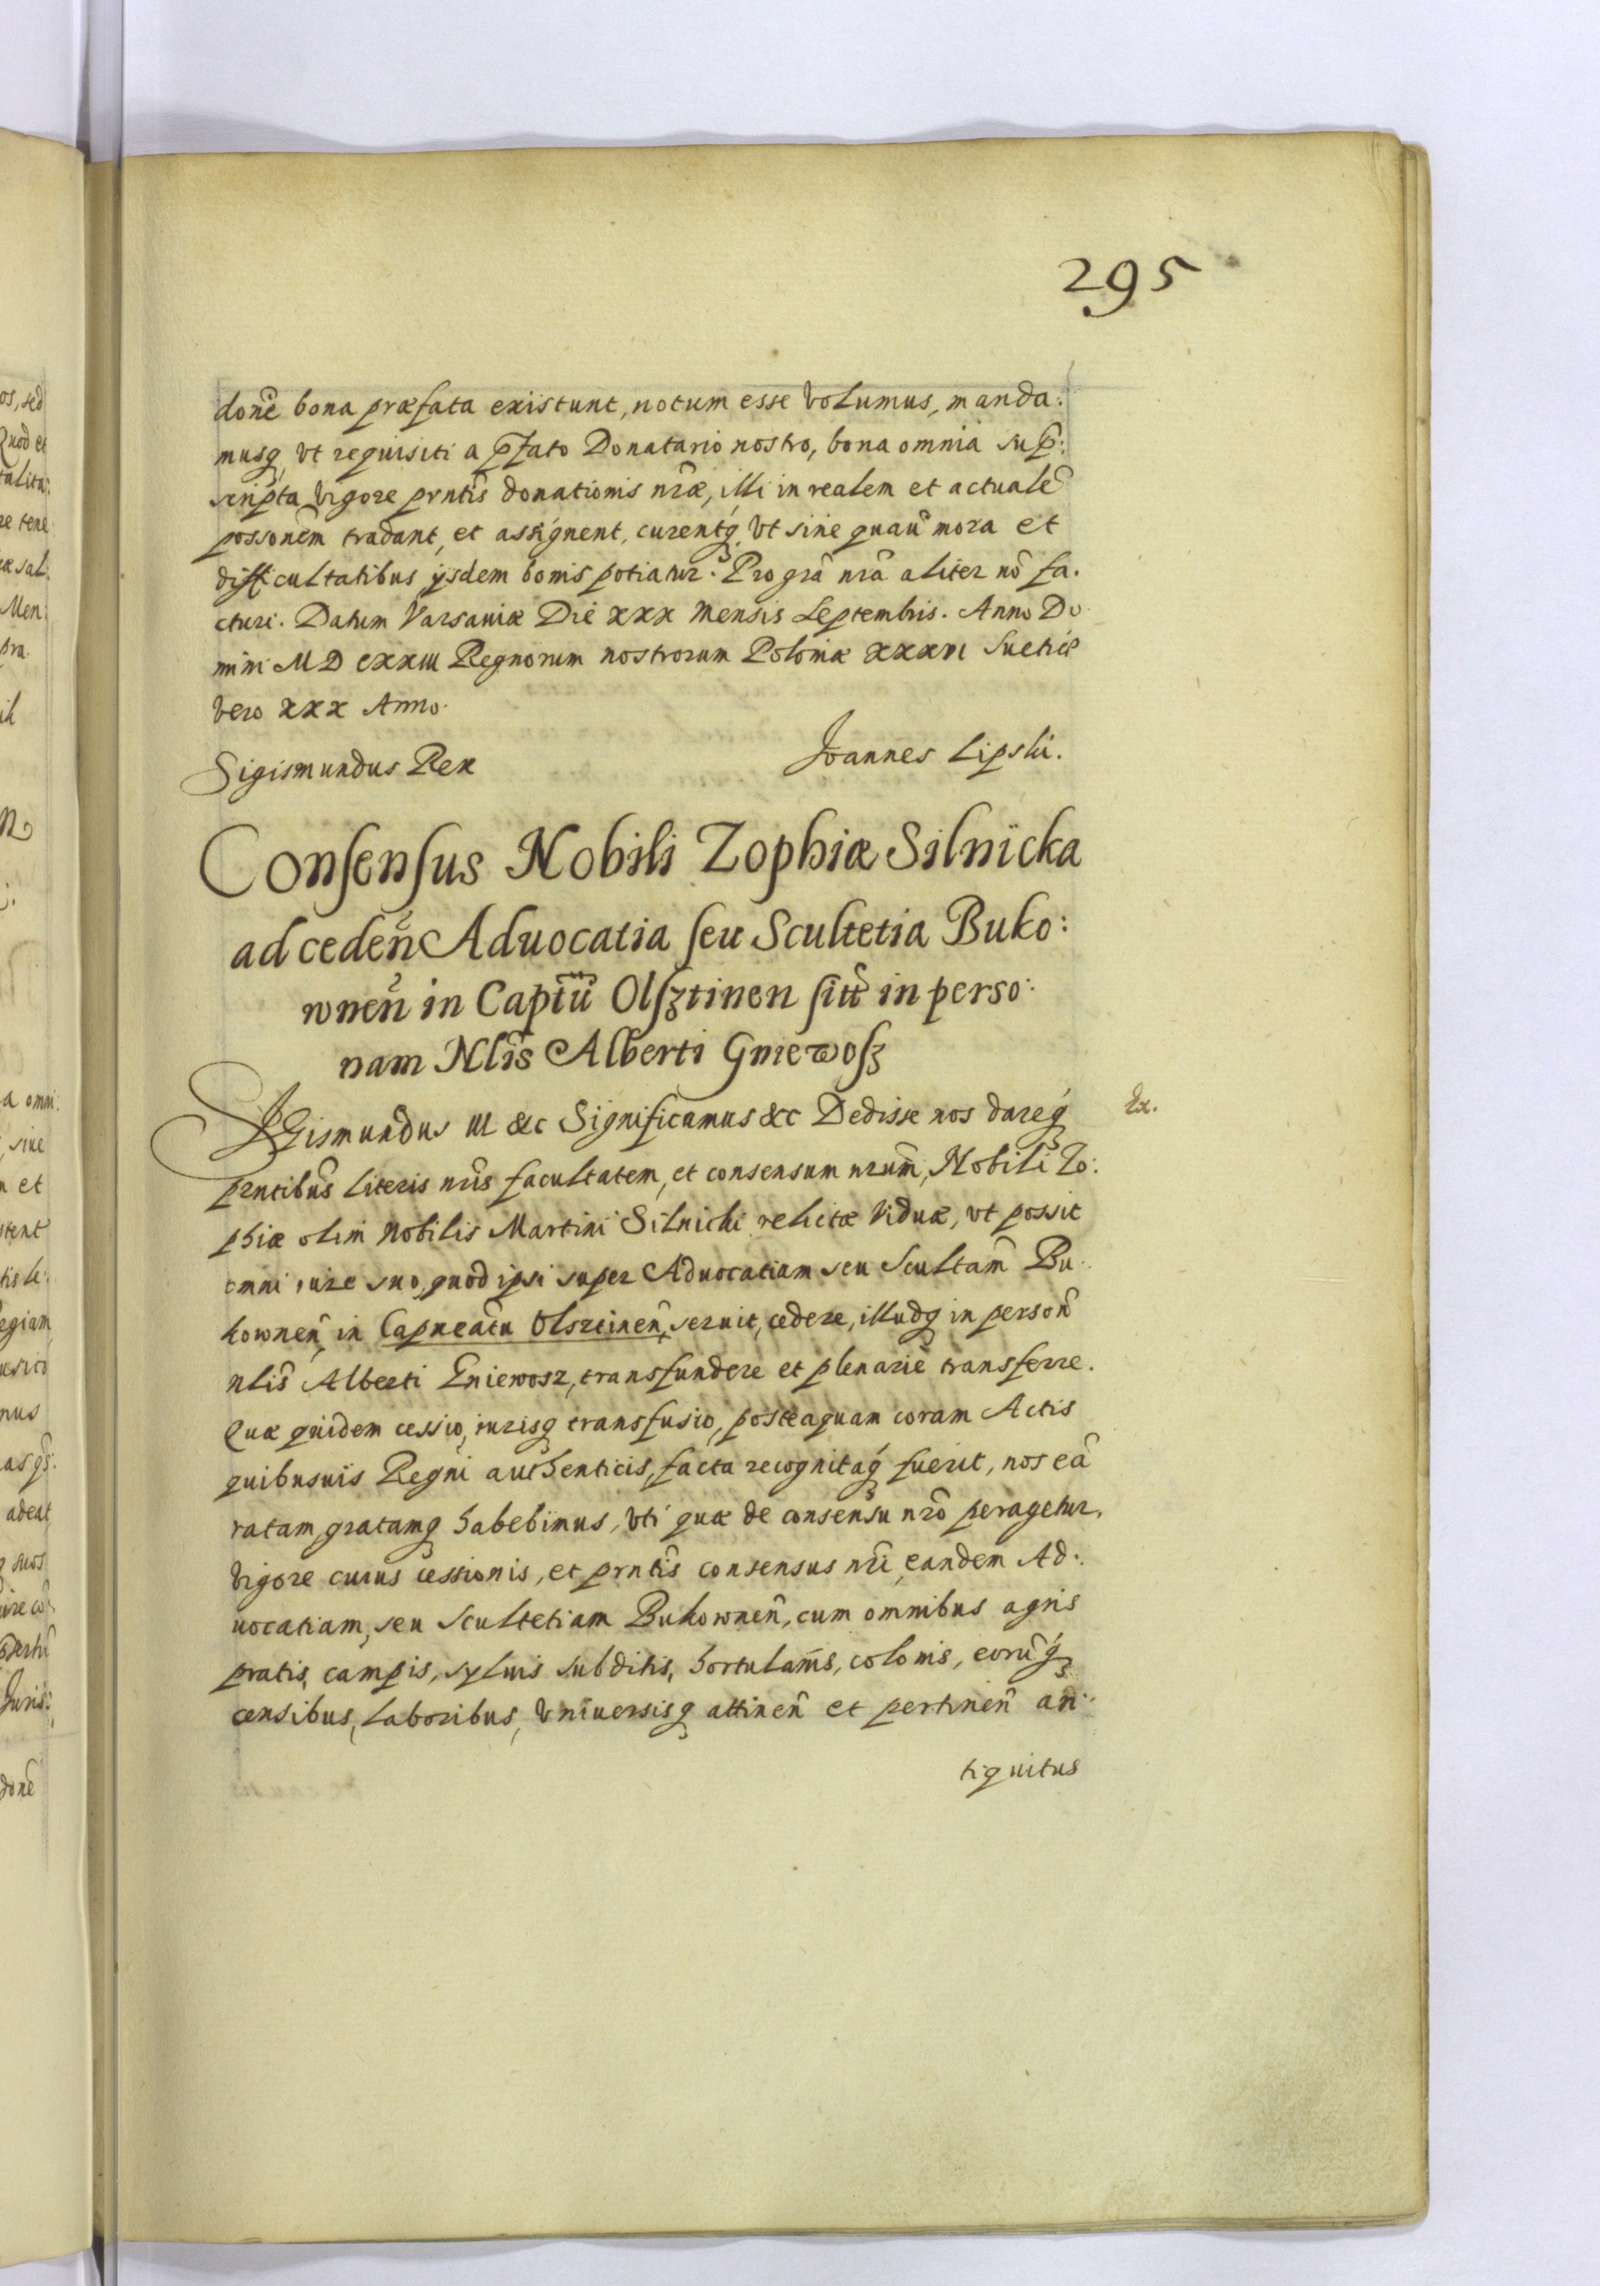 295
donē bona præfata existunt, notum esse volumus, manda:
musq, vt requisiti a p̄fato Donatario nostro, bona omnia sup̄:
scripta vigore prntis donationis nr̄æ, illi in realem et actualē
possonem tradant, et assignent, curentq, vt sine quauī mora et
difficultatibus ijsdem bonis potiatur. Pro grā nrā aliter nō fa:
cturi. Datum Varsaviæ Die xxx Mensis Septembris. Anno Do
mini MD cxxiii Regnorum nostrorum Poloniæ xxxvi Suetiæ
vero xxx Anno.
Sigismundus Rex Joannes Lipski.
Consensus Nobili Zophiæ Silnicka
ad cedeñ Aduocatia seu Scultetia Buko:
wneñ in Captū Olsztinen sitt̄ in perso:
nam Nlis Alberti Gniewosz
Sigismundus III &c Significamus &c Dedisse nos dareq́
Ex.
prntibus literis nris facultatem, et consensum nrum, Nobili Zo:
phiæ olim Nobilis Martini Silnicki relictæ Viduæ, vt possit
omni iure suo, quod ipsi super Aduocatiam seu Scultam̄ Bu:
kowneñ, in Capneatu Olszteineñ, seruit, cedere, illudq in personā
nlis Alberti Gniewosz, transfundere et plenarie transferre.
Quæ quidem cessio, iurisq transfusio, posteaquam coram Actis
quibusuis Regni authenticis, facta recognitaq́ fuerit, nos eā
ratam, gratamq habebimus, vti quæ de consensu nrō peragetur,
vigore cuius cessionis, et prntis consensus nri, eandem Ad:
uocatiam, seu Scultetiam Bukowneñ, cum omnibus agris
pratis, campis, syluis subditis, hortulanis, colonis, eorūq́
censibus, laboribus, vniuersisq attineñ et pertineñ an:
tiquitus